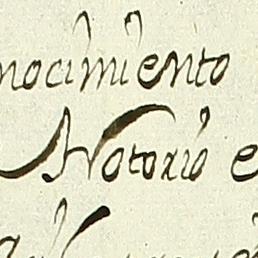 nocimiento
Notorio e